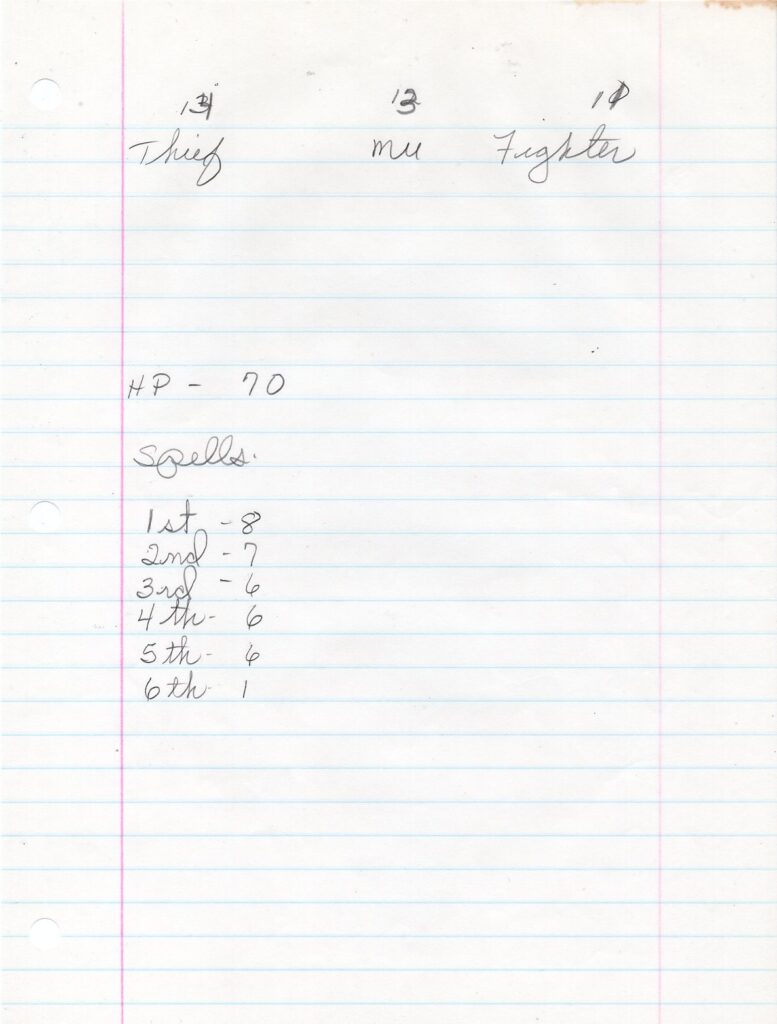 Thief mu Fighter
HP - 70
Spells.
1st - 8
2nd - 7
3rd - 6
4th - 6
5th - 6
6th - 1